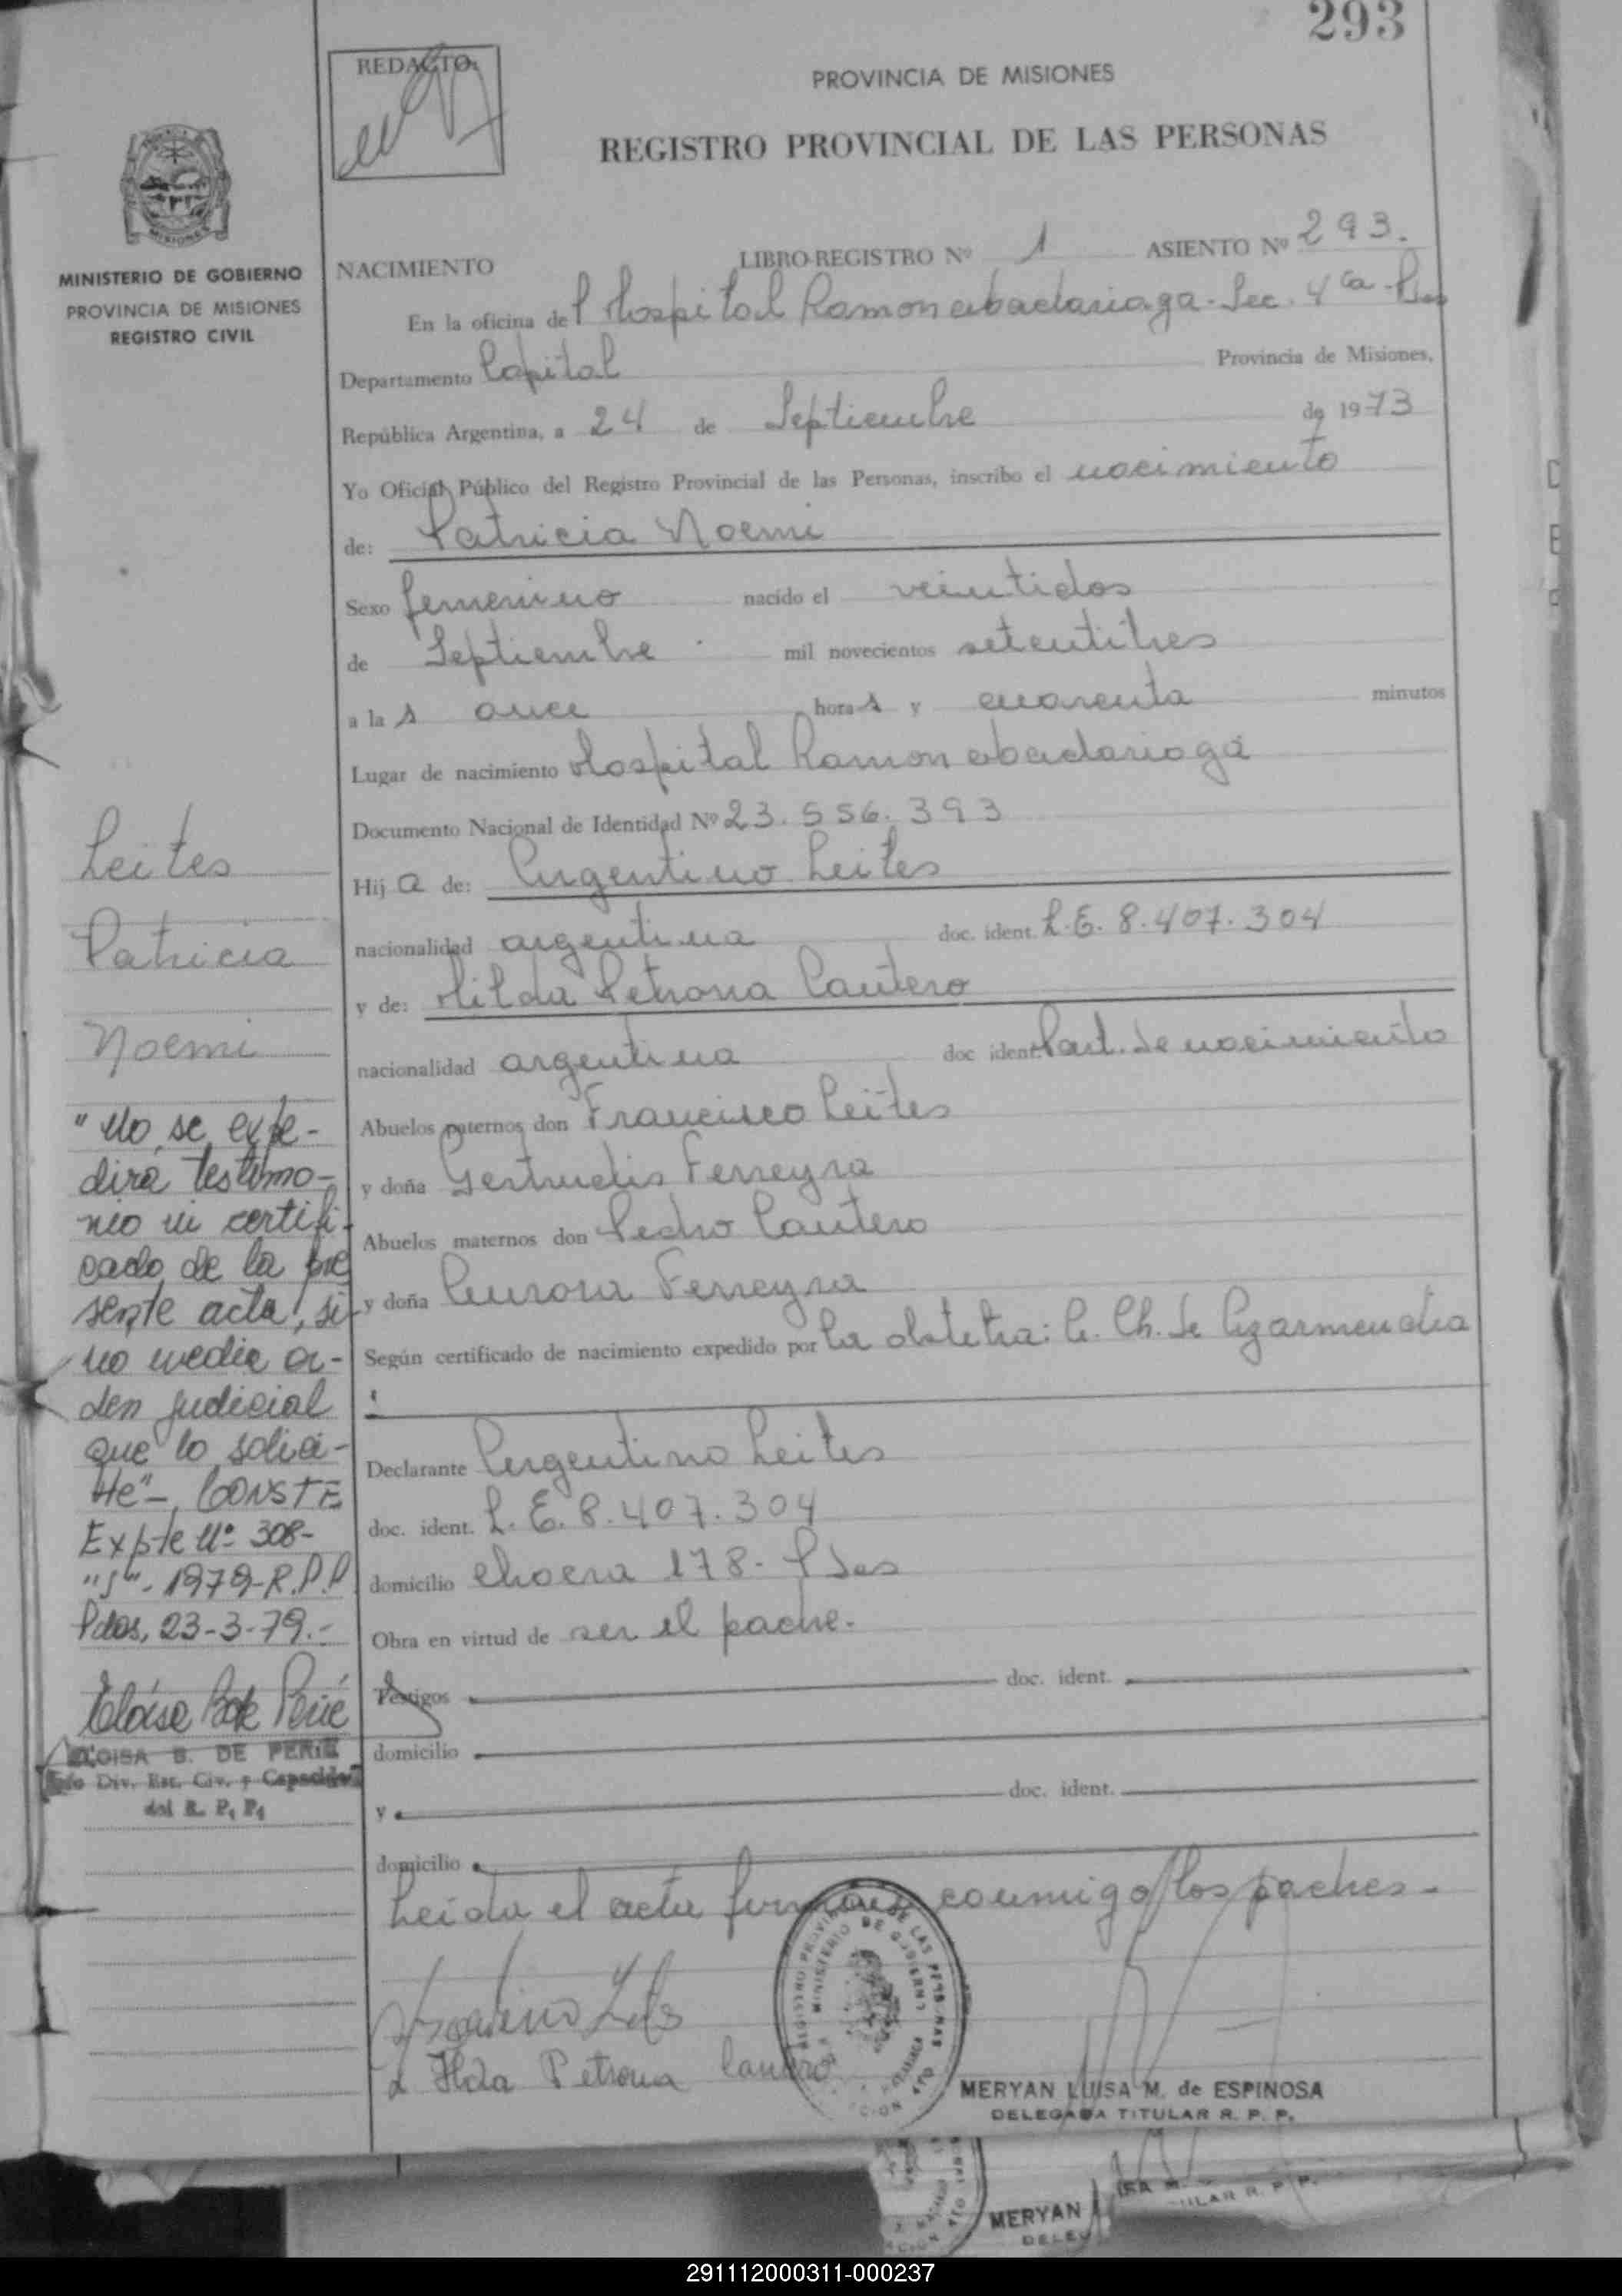 293
REDACTO:
PROVINCIA DE MISIONES
REGISTRO PROVINCIAL DE LAS PERSONAS
MISIONES
MINISTERIO DE GOBIERNO
PROVINCIA DE MISIONES
REGISTRO CIVIL
NACIMIENTO LIBRO-REGISTRO Nº 1 ASIENTO Nº 293.
En la oficina del Hospital Ramon abadariaga. Sec. 4ta. Pdas
Departamento Capital Provincia de Misiones,
República Argentina, a 24 de Septiembre de 1973
Yo Oficial Público del Registro Provincial de las Personas, inscribo el nacimiento
de: Patricia Noemi
Sexo femenino nacido el veintidos
de Septiembre mil novecientos setentitres
a la s once hora s y cuarenta minutos
Lugar de nacimiento Hospital Ramon abadariaga
Documento Nacional de Identidad Nº 23.556.393
Hij a de: Argentino Leites
nacionalidad argentina doc. ident. L.E. 8.407.304
y de: Hilda Petrona Cantero
nacionalidad argentina doc ident Part. de nacimiento
Abuelos paternos don Francisco Leites
y doña Gertrudis Ferreyra
Abuelos maternos don Pedro Cantero
y doña Aurora Ferreyra
Según certificado de nacimiento expedido por la obstetra: C. Ch. de Azarmendia
Declarante Argentino Leites
doc. ident. L.E. 8.407.304
domicilio 178 - Pdas
Obra en virtud de ser el padre.
Testigos doc. ident.
domicilio
y doc. ident.
domicilio
Leida el acta firman conmigo los padres.
Leites
Patricia
Noemi
"No se expe-
dirá testimo-
nio ni certifi-
cado de la pre
sente acta, si
no media or-
den judicial
que lo solici-
te"- CONSTE
Expte Nº 308-
"S"- 1979-R.P.P.
Pdas, 23-3-79.-
ELOISA B. DE PERIE
Jefe Div. Est. Civ. y Capacidad
del R. P. P.
Hilda Petrona Cantero
REGISTRO PROVINCIAL DE LAS PERSONAS
MINISTERIO DE GOBIERNO
MERYAN LUISA M. de ESPINOSA
DELEGADA TITULAR R. P. P.
MERYAN
291112000311-000237